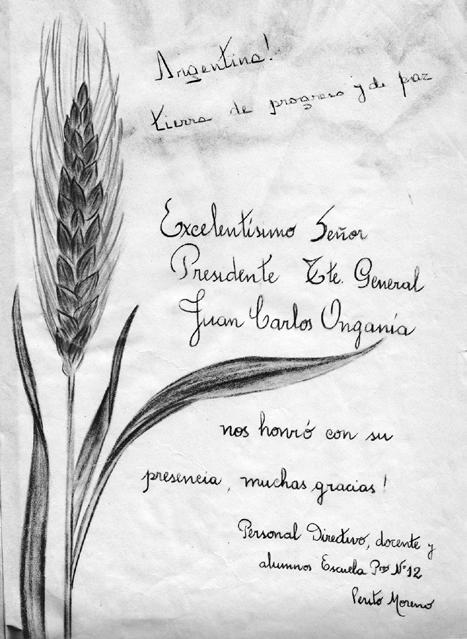 Argentina!
tierra de progreso y de paz
Excelentísimo Señor
Presidente Tte. General
Juan Carlos Onganía
nos honró con su
presencia, muchas gracias!
Personal Directivo, docente y
alumnos Escuela Pcial Nº 12
Perito Moreno